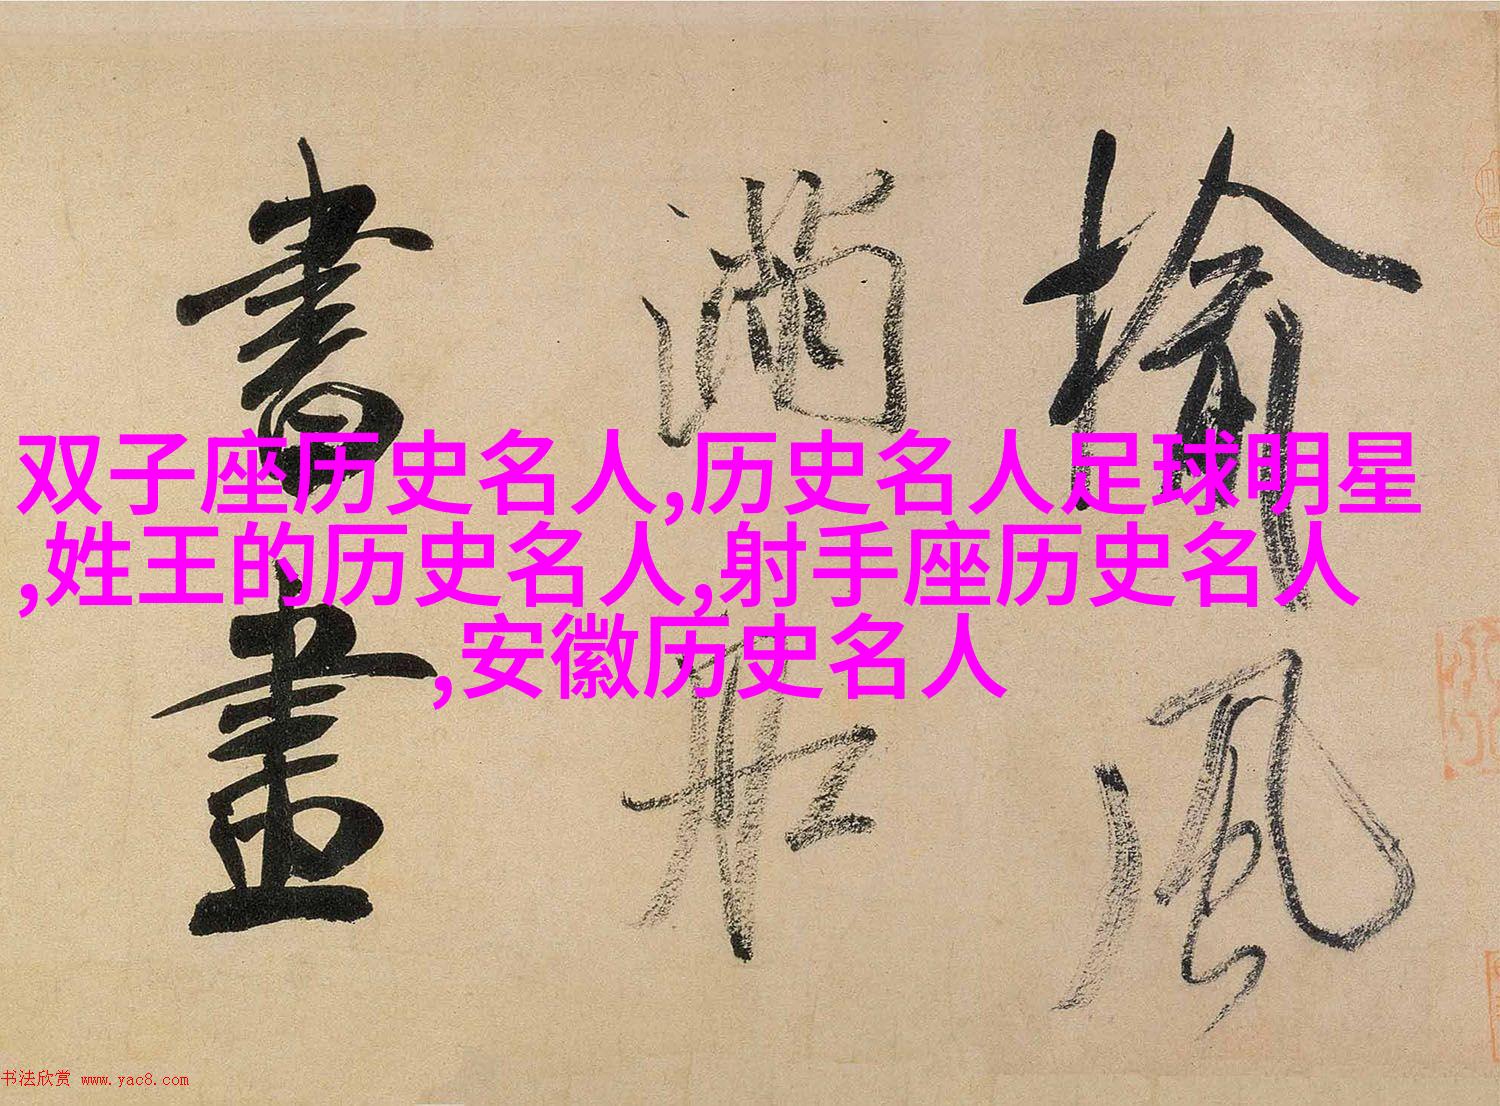 榆風
滿船
書畫
双子座历史名人,历史名人足球明星
,姓王的历史名人,射手座历史名人
,安徽历史名人
书法欣赏 www.yac8.com